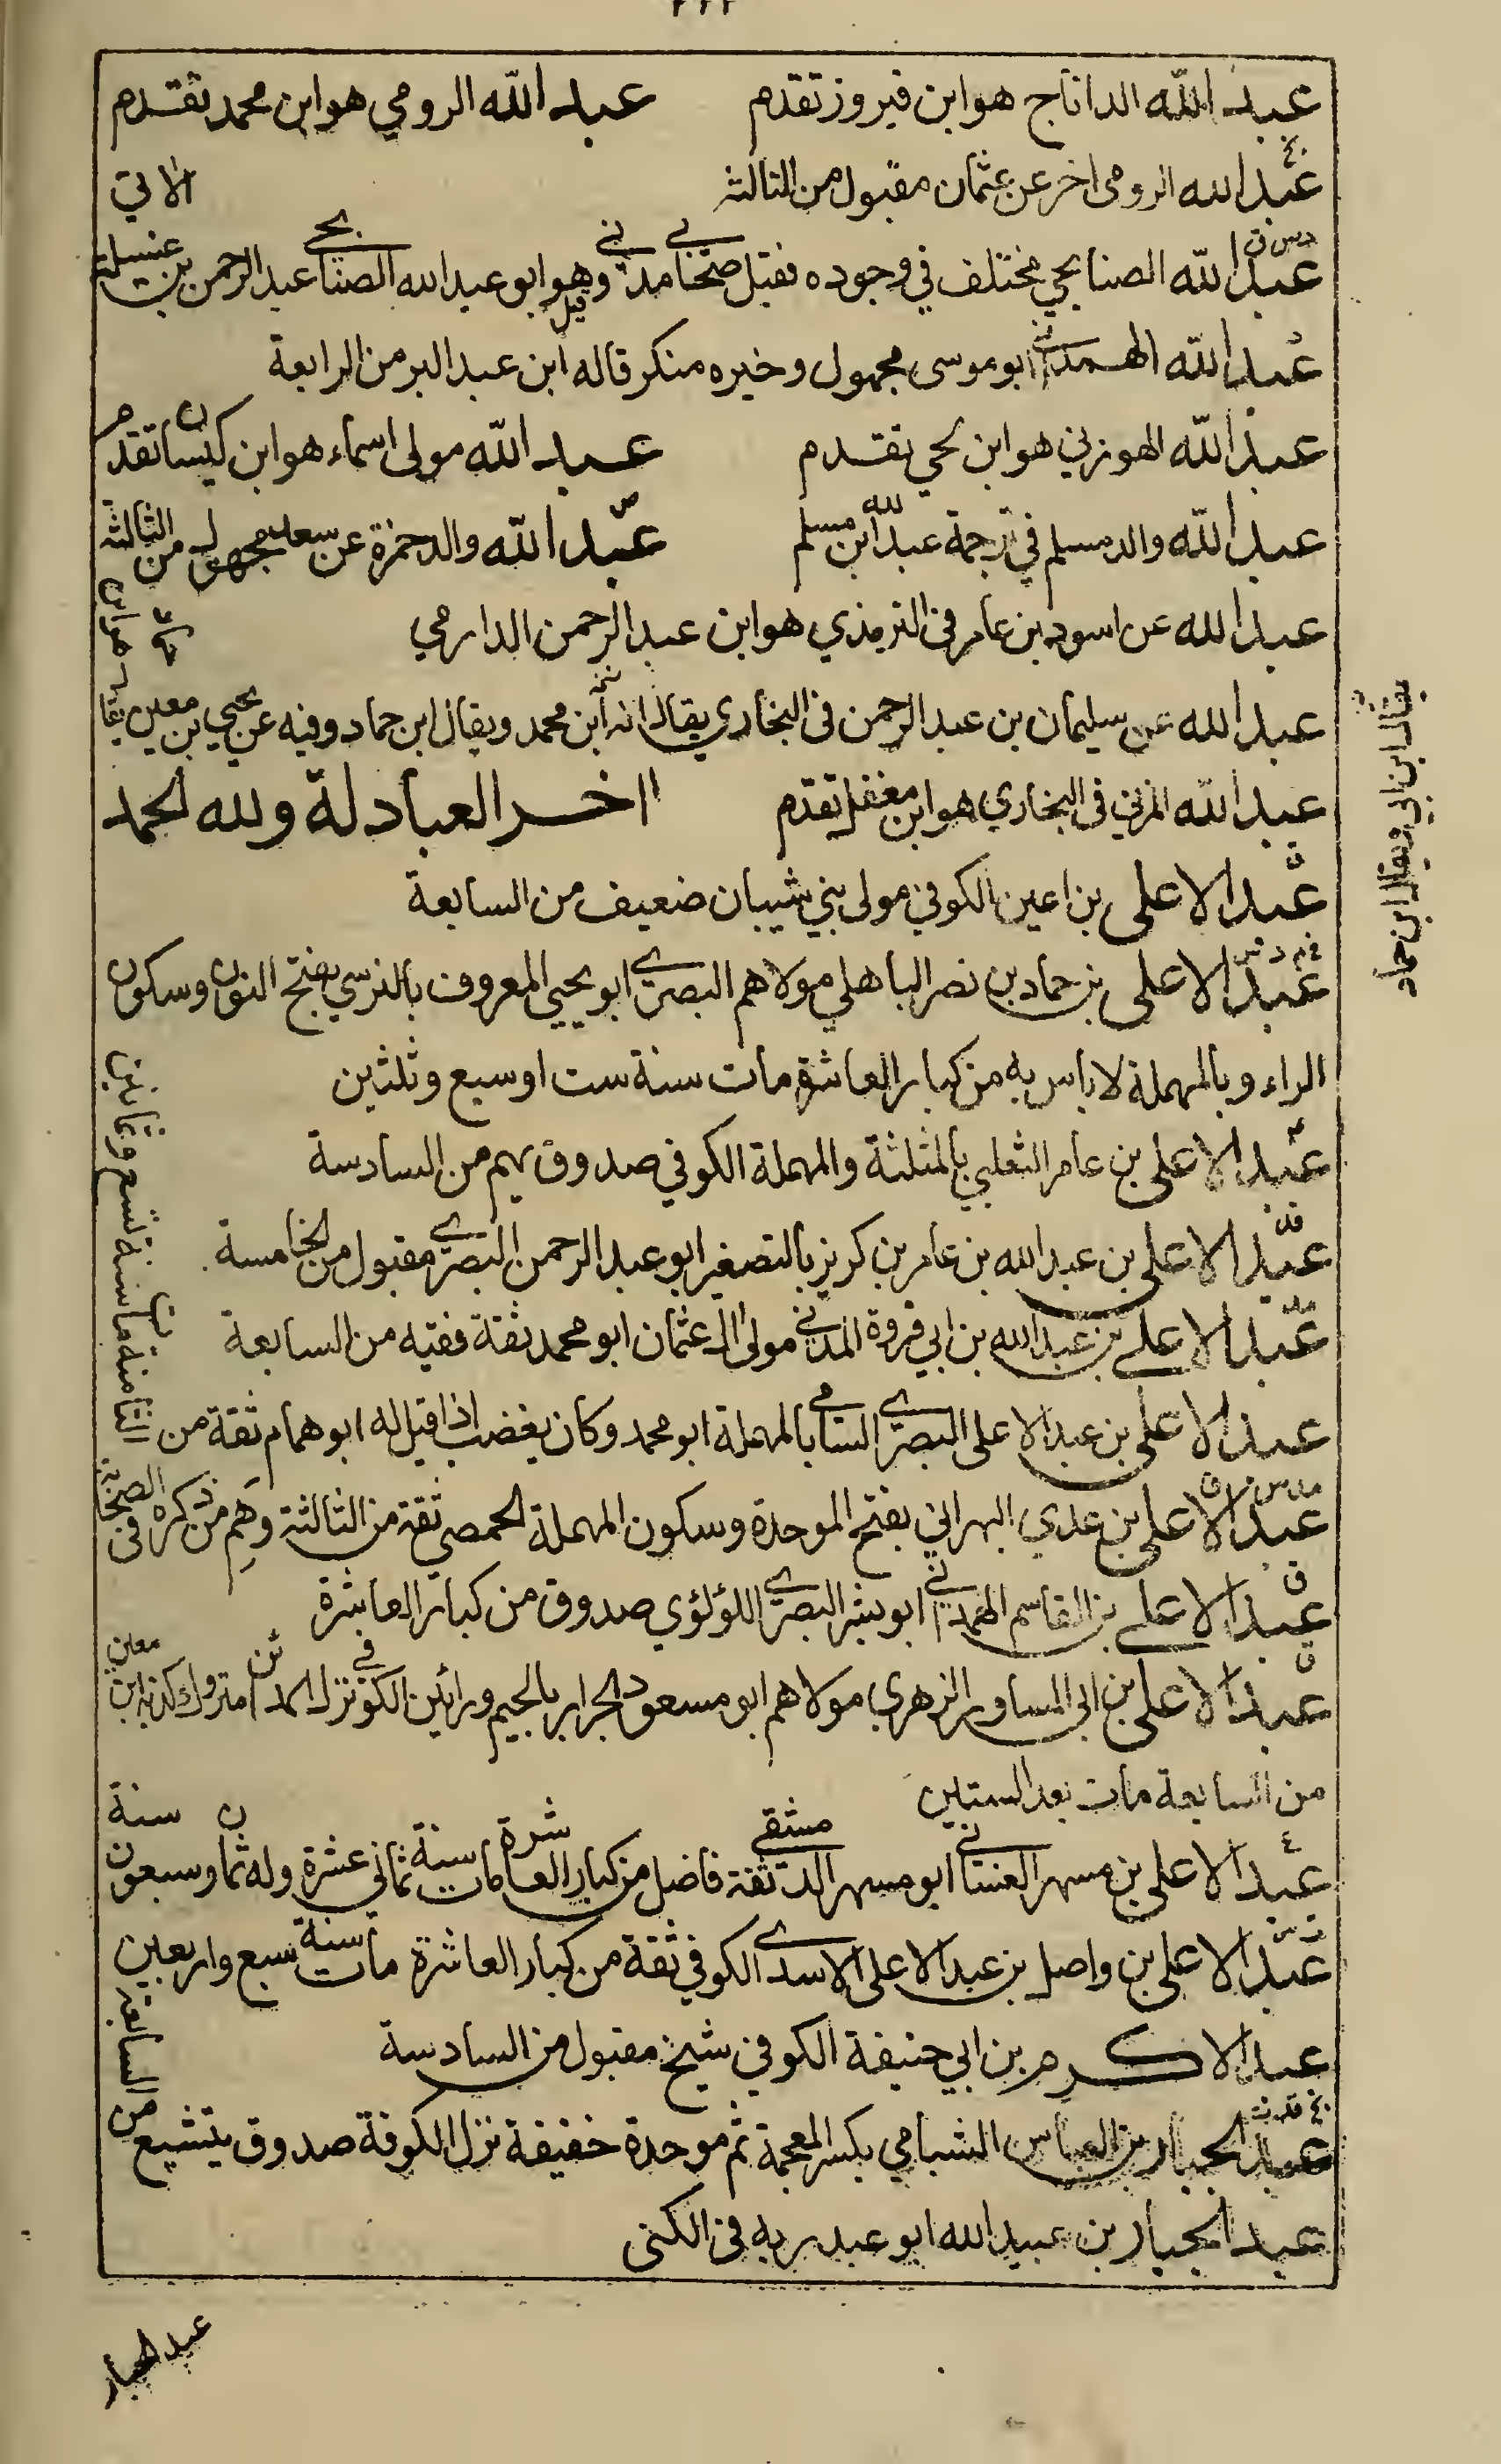 عبد الله الداناج هو ابن فيروز تقدم عبد الله الرومي هو ابن محمد تقدم
عبد الله الرومي اخر عن عثمان مقبول من الثالثة
الاتي
عبد الله الصنابحي مختلف في وجوده فقيل صحابي مدني وقيل هو ابو عبد الله الصنابحي عبد الرحمن بن عسيلة
عبد الله الهمداني ابو موسى مجهول وخبره منكر قاله ابن عبد البر من الرابعة
عبد الله الهوزني هو ابن لحي تقدم عبد الله مولى اسماء هو ابن كيسان تقدم
عبد الله والد مسلم في ترجمة عبد الله ابن مسلم عبد الله والد حمزة عن سعد مجهول من الثالثة
عبد الله عن اسود بن عامر في الترمذي هو ابن عبد الرحمن الدارمي
عبد الله عن سليمان بن عبد الرحمن في البخاري يقال انه ابن محمد ويقال ابن حماد وفيه عن يحيى بن معين يقال هو ابن حماد
عبد الله المزني في البخاري هو ابن مغفل تقدم اخر العبادلة ولله الحمد
يقال ابن ابي ويقال ابن حماد
عبد الاعلى بن اعين الكوفي مولى بني شيبان ضعيف من السابعة
خ م د س
عبد الاعلى بن حماد بن نصر الباهلي مولاهم البصري ابو يحيى المعروف بالنرسي بفتح النون وسكون
الراء وبالمهملة لا باس به من كبار العاشرة مات سنة ست او سبع وثلثين
عبد الاعلى بن عامر الثعلبي بالمثلثة والمهملة الكوفي صدوق يهم من السادسة
عبد الاعلى بن عبد الله بن عامر بن كريز بالتصغير ابو عبد الرحمن البصري مقبول من الخامسة
عبد الاعلى بن عبد الله بن ابي فروة المدني مولى ال عثمان ابو محمد ثقة فقيه من السابعة
عبد الاعلى بن عبد الاعلى البصري السامي بالمهملة ابو محمد وكان يغضب اذا قيل له ابو همام ثقة من الثامنة مات سنة تسع وثمانين
عبد الاعلى بن عدي البهراني بفتح الموحدة وسكون المهملة الحمصي ثقة من الثالثة وهم من ذكره في الصحابة
ق
عبد الاعلى بن القاسم الهمداني ابو بشر البصري اللؤلؤي صدوق من كبار العاشرة
ق
عبد الاعلى بن ابي المساور الزهري مولاهم ابو مسعود الجرار بالجيم ورائين الكوفي نزل المدائن متروك كذبه ابن معين
من السابعة مات بعد الستين
ع
عبد الاعلى بن مسهر الغساني ابو مسهر الدمشقي ثقة فاضل من كبار العاشرة مات سنة ثماني عشرة وله ثمان وسبعون سنة
ت س
عبد الاعلى بن واصل بن عبد الاعلى الاسدي الكوفي ثقة من كبار العاشرة مات سنة سبع واربعين
عبد الاكرم بن ابي حنيفة الكوفي شيخ مقبول من السادسة
عبد الجبار بن العباس الشبامي بكسر المعجمة ثم موحدة خفيفة نزل الكوفة صدوق يتشيع من السابعة
عبد الجبار بن عبيد الله ابو عبد ربه في الكنى
عبد الجبار